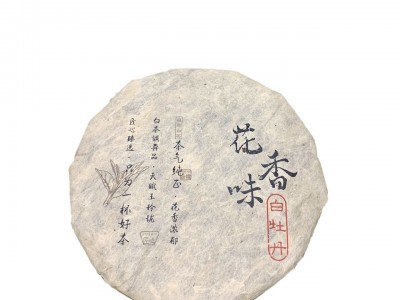 花香味
白牡丹
茶气纯正，花香浓郁
白茶级弄品，天赋玉怜优
匠心臻选，只为一杯好茶